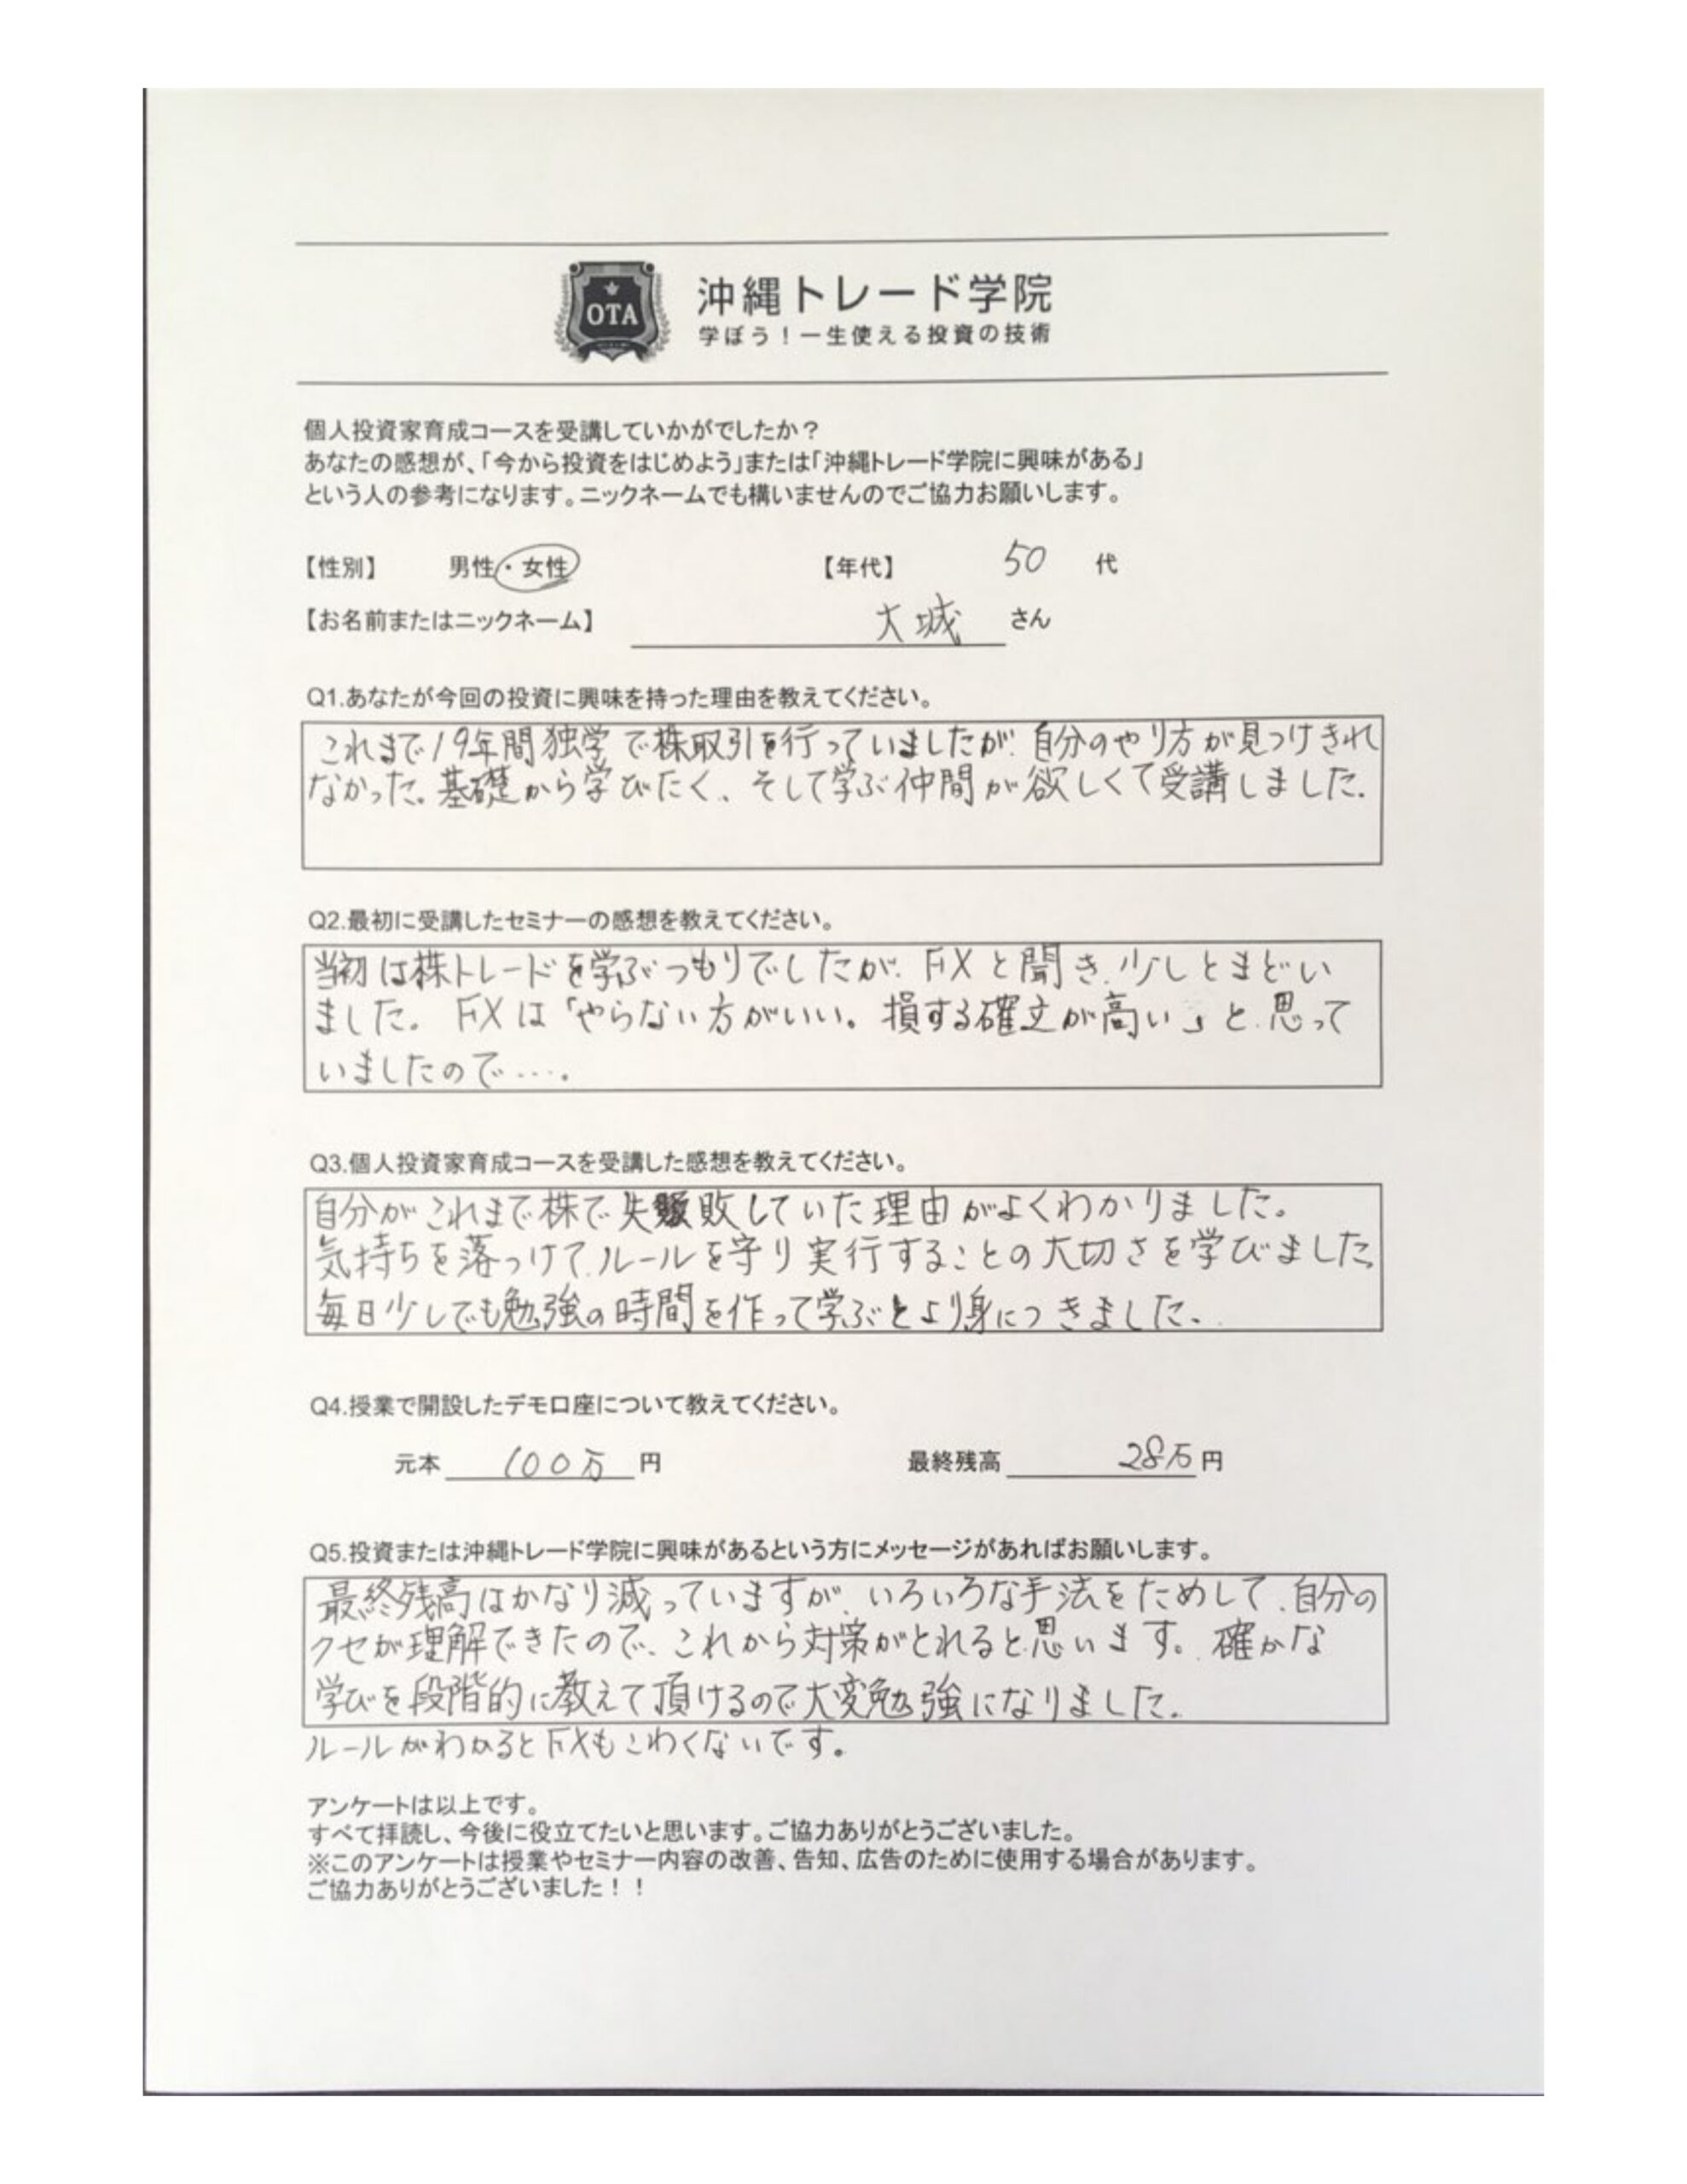 OTA
沖縄トレード学院
学ぼう！一生使える投資の技術
個人投資家育成コースを受講していかがでしたか？
あなたの感想が、「今から投資をはじめよう」または「沖縄トレード学院に興味がある」
という人の参考になります。ニックネームでも構いませんのでご協力お願いします。
【性別】 男性・女性 【年代】 50 代
【お名前またはニックネーム】 大城 さん
Q1.あなたが今回の投資に興味を持った理由を教えてください。
これまで19年間独学で株取引を行っていましたが、自分のやり方が見つけきれ
なかった。基礎から学びたく、そして学ぶ仲間が欲しくて受講しました。
Q2.最初に受講したセミナーの感想を教えてください。
当初は株トレードを学ぶつもりでしたが、FXと聞き、少しとまどい
ました。FXは「やらない方がいい。損する確立が高い」と思って
いましたので….
Q3.個人投資家育成コースを受講した感想を教えてください。
自分がこれまで株で失敗していた理由がよくわかりました。
気持ちを落つけて、ルールを守り実行することの大切さを学びました。
毎日少しでも勉強の時間を作って学ぶとより身につきました。
Q4.授業で開設したデモ口座について教えてください。
元本 100万 円 最終残高 28万 円
Q5.投資または沖縄トレード学院に興味があるという方にメッセージがあればお願いします。
最終残高はかなり減っていますが、いろいろな手法をためして、自分の
クセが理解できたので、これから対策がとれると思います。確かな
学びを段階的に教えて頂けるので大変勉強になりました。
ルールがわかるとFXもこわくないです。
アンケートは以上です。
すべて拝読し、今後に役立てたいと思います。ご協力ありがとうございました。
※このアンケートは授業やセミナー内容の改善、告知、広告のために使用する場合があります。
ご協力ありがとうございました！！